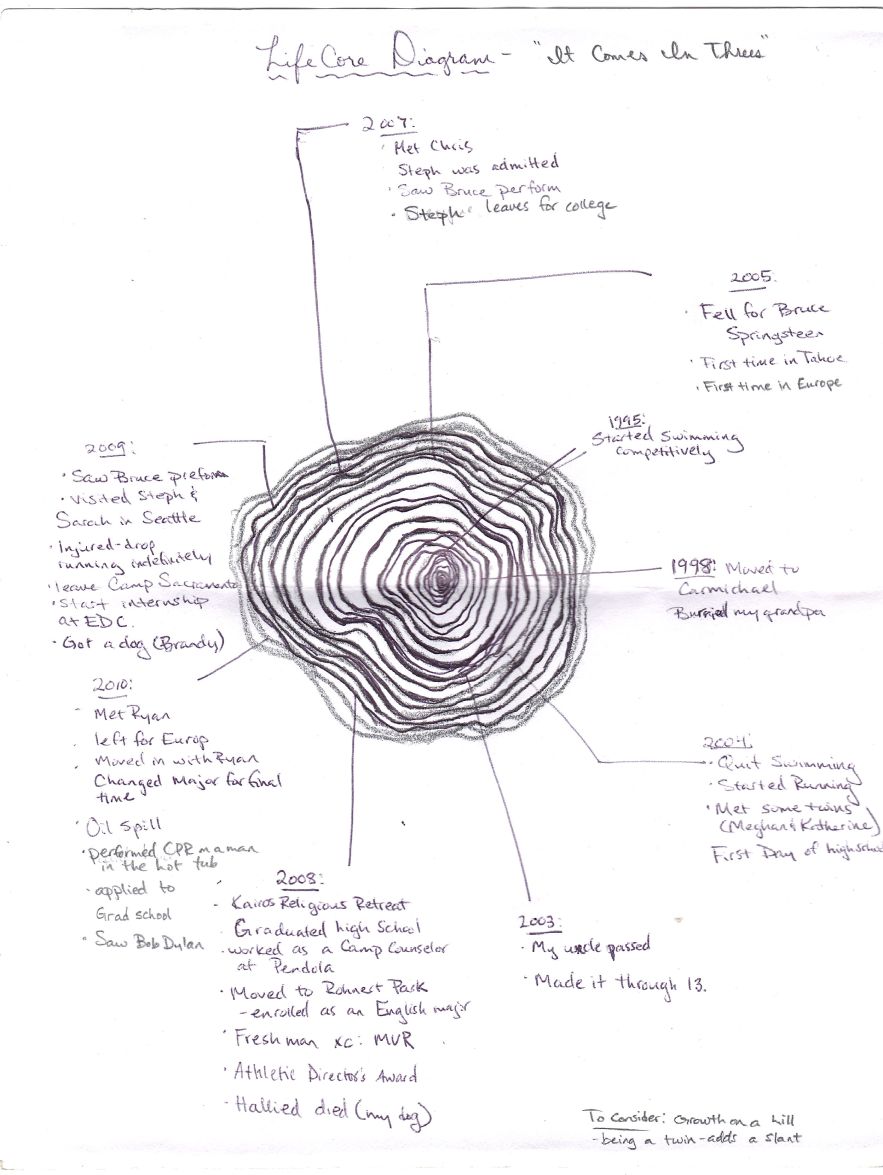 Life Core Diagram - "It Comes In Threes"
2007:
· Met Chris
Steph was admitted
· Saw Bruce perform
· Steph leaves for college
2005:
· Fell for Bruce
Springsteen
· First time in Tahoe
· First time in Europe
1995:
Started Swimming
competitively
2009:
· Saw Bruce preform
· Visited Steph &
Sarah in Seattle
· Injured-drop
running indefinitely
· leave Camp Sacramento
· Start internship
at EDC.
· Got a dog (Brandy)
1998: Moved to
Carmichael
Burried my grandpa
2010:
- Met Ryan
. left for Europ
. Moved in with Ryan
Changed Major for final
time
· Oil Spill
· performed CPR on a man
in the hot tub
· applied to
Grad school
· Saw Bob Dylan
2004:
· Quit Swimming
· Started Running
· Met some twins
(Meghan & Katherine)
First Day of highschool
2008:
- Kairos Religious Retreat
· Graduated high School
· worked as a Camp Counselor
at Pendola
· Moved to Rohnert Park
- enrolled as an English major
· Freshman xc: MVR
· Athletic Director's Award
· Hallied died (my dog)
2003:
· My uncle passed
· Made it through 13.
To Consider: Growth on a hill
- being a twin - adds a slant